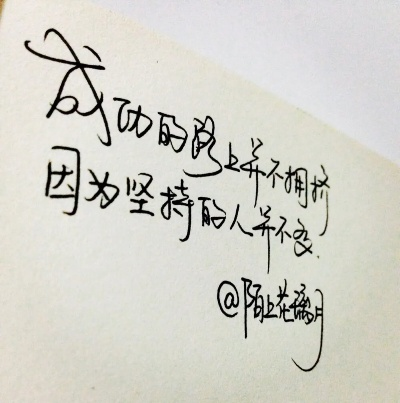 成功的路上并不拥挤
因为坚持的人并不多.
@陌上花满月